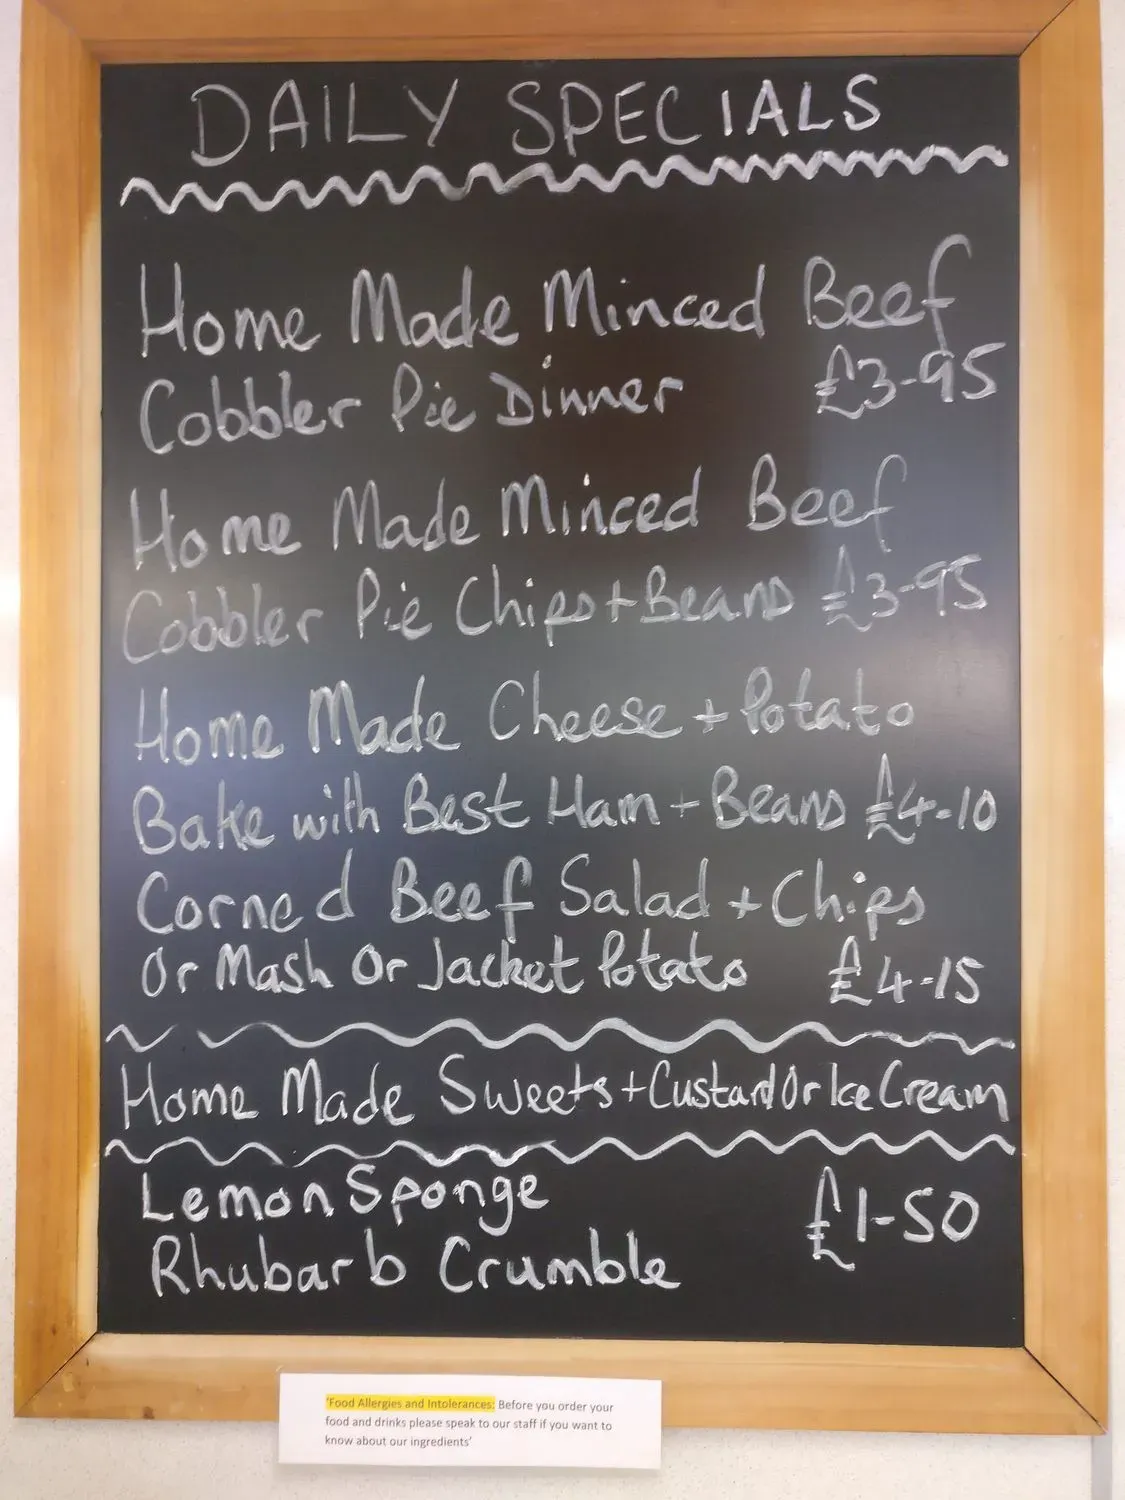 DAILY SPECIALS
Home Made Minced Beef
Cobbler Pie Dinner £3-95
Home Made Minced Beef
Cobbler Pie Chips + Beans £3-95
Home Made Cheese + Potato
Bake with Best Ham + Beans £4-10
Corned Beef Salad + Chips
Or Mash Or Jacket Potato £4-15
Home Made Sweets + Custard Or Ice Cream
Lemon Sponge £1-50
Rhubarb Crumble
'Food Allergies and Intolerances: Before you order your
food and drinks please speak to our staff if you want to
know about our ingredients'